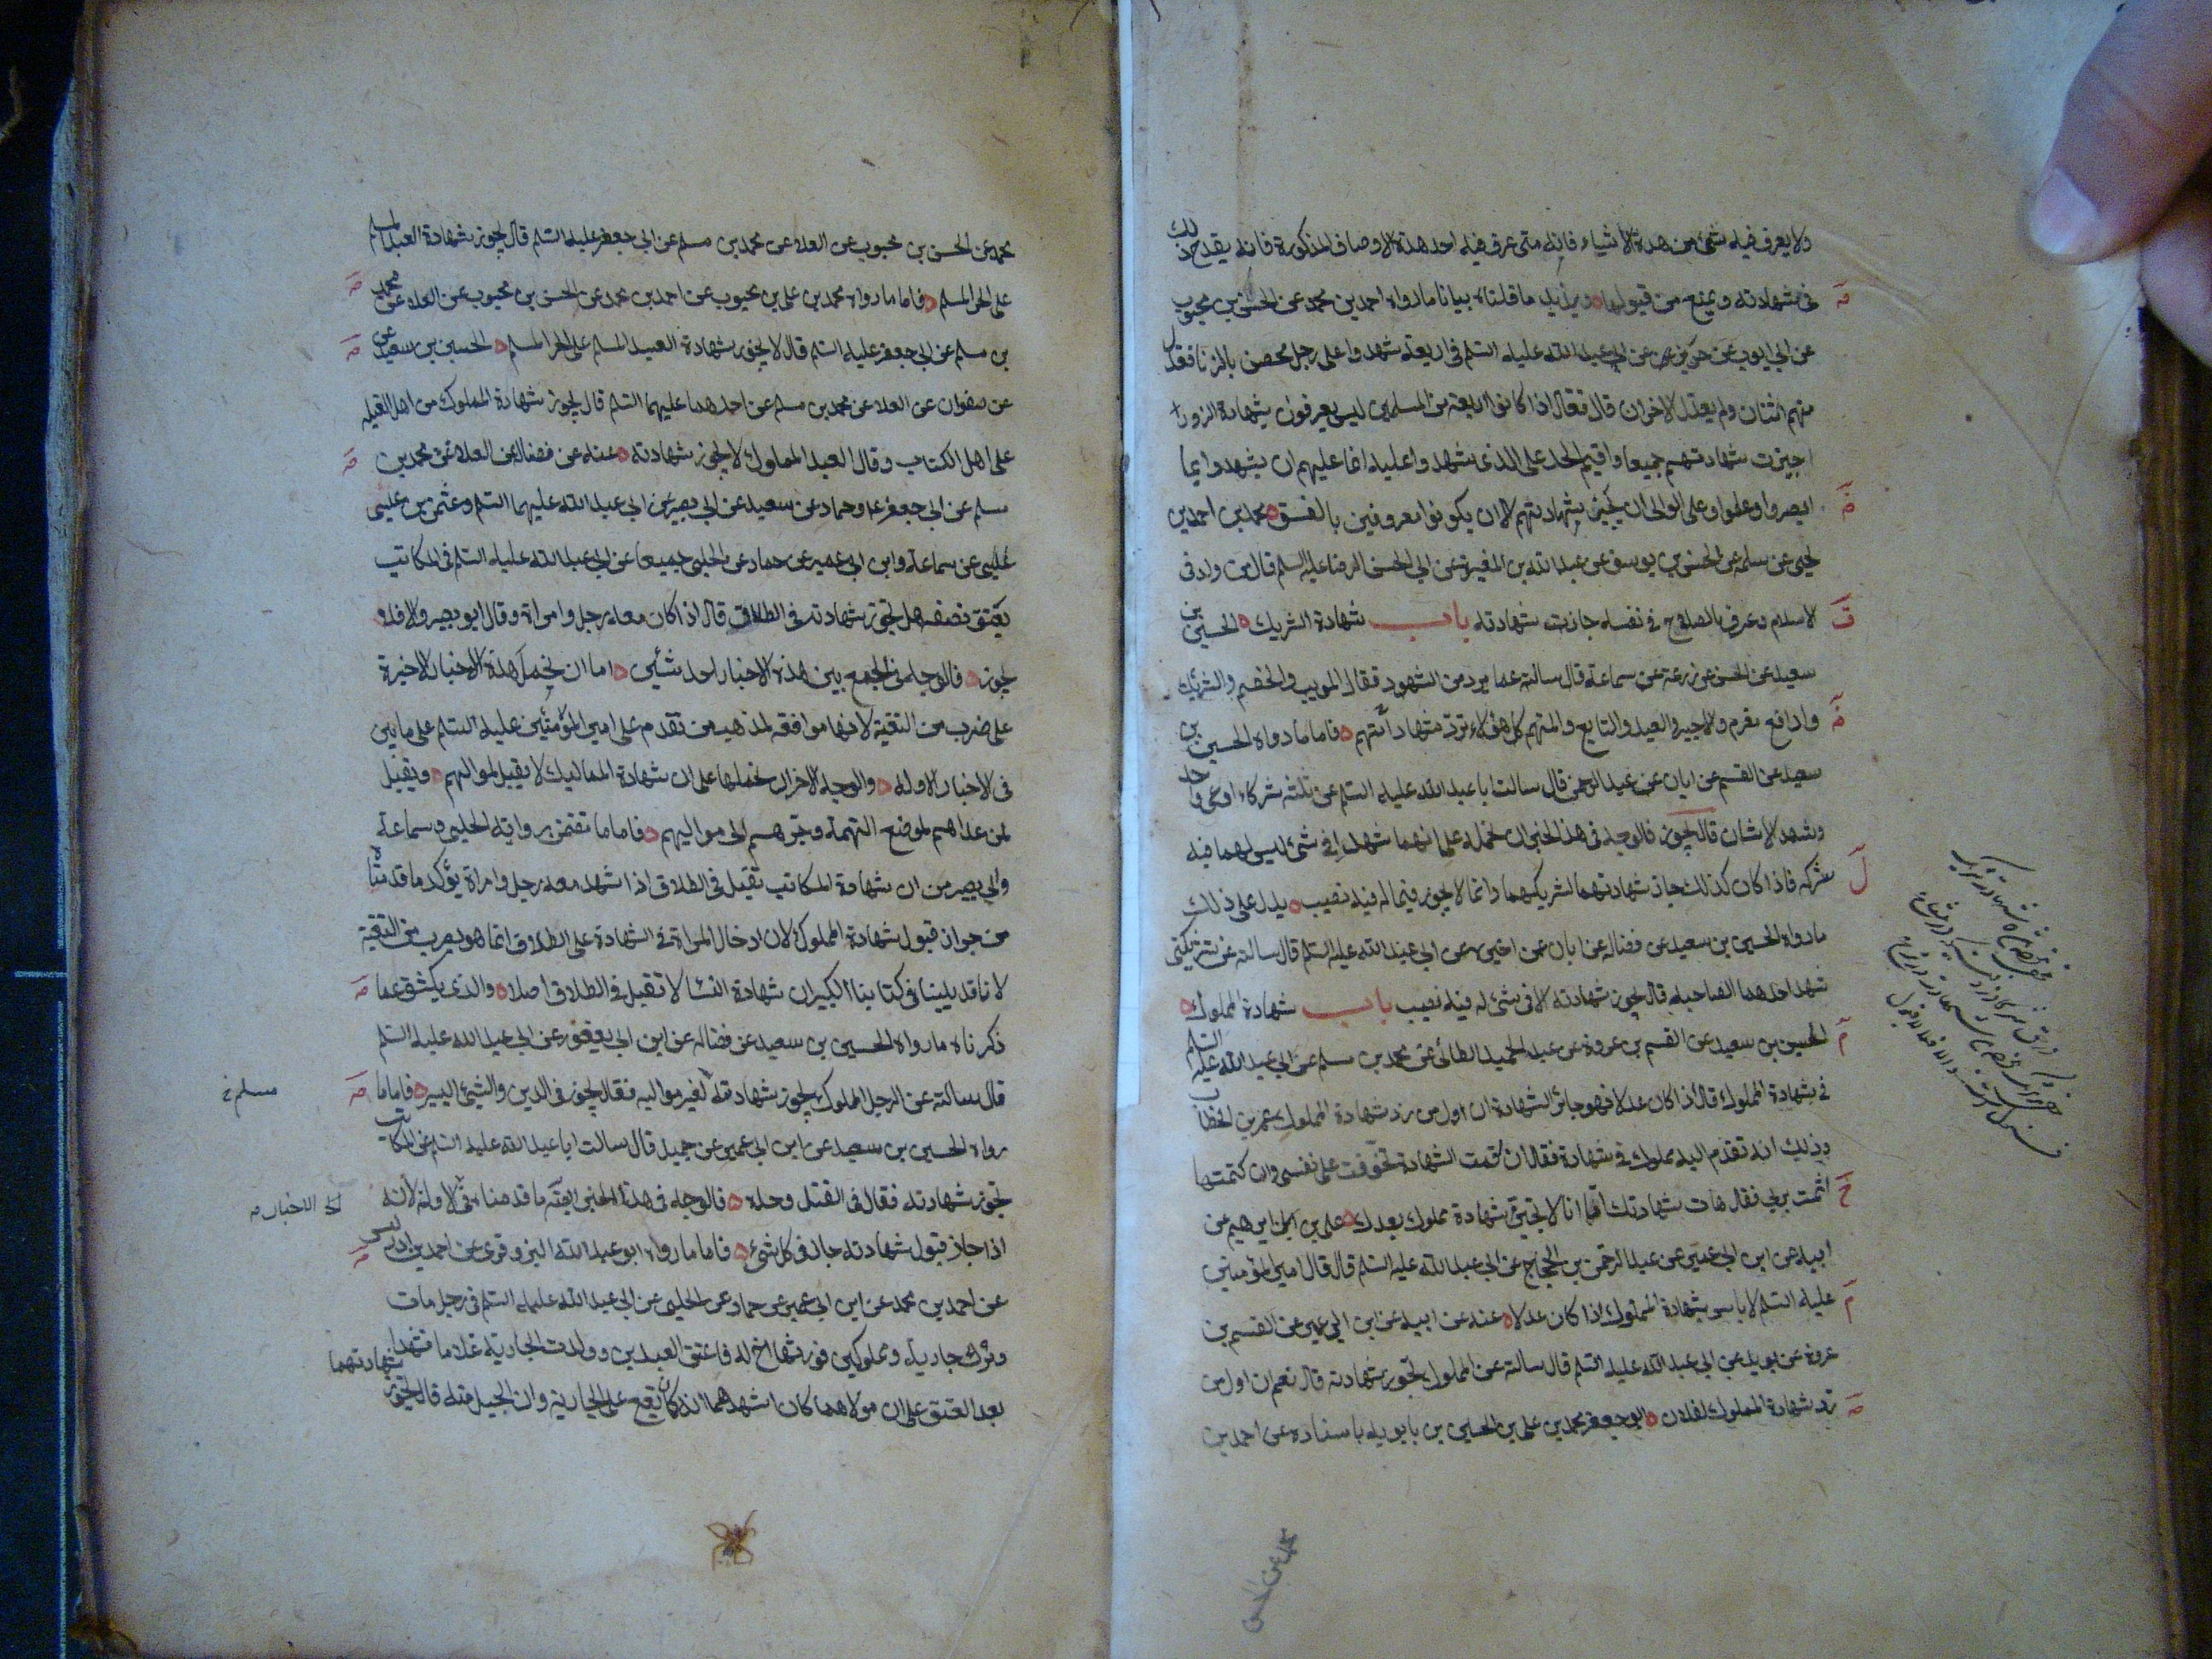 ولا يعرف فيه شئ من هذه الاشياء فانه متى عرف فيه احد هذه الاوصاف المذكورة فانه يقدح ذلك
فى شهادته ويمنع من قبولها ويزيد ما قلناه بيانا ما رواه احمد بن محمد عن الحسن بن محبوب
عن ابى ايوب عن حريز عن ابى عبد الله عليه السلم فى اربعة شهدوا على رجل محصن بالزنا فعدل
منهم اثنان ولم يعدل الاخران قال فقال اذا كانوا اربعة من المسلمين ليس يعرفون بشهادة الزور
اجيزت شهادتهم جميعا واقيم الحد على الذى شهدوا عليه انما عليهم ان يشهدوا بما
ابصروا وعلموا وعلى الوالى ان يجيز شهادتهم الا ان يكونوا معروفين بالفسق محمد بن احمد بن
يحيى عن سلمه عن الحسن بن يوسف عن عبد الله بن المغيرة عن ابى الحسن الرضا عليه السلم قال من ولد فى
الاسلام وعرف بالصلاح فى نفسه جازت شهادته باب شهادة الشريك الحسين بن
سعيد عن الحسن عن زرعة عن سماعة قال سالته عما يرد من الشهود فقال المريب والخصم والشريك
ودافع مغرم والاجير والعبد والتابع والمتهم كل هؤلاء ترد شهاداتهم فاما ما رواه الحسين بن
سعيد عن القسم عن ابان عن عبد الرحمن قال سالت ابا عبد الله عليه السلم عن ثلثة شركاء ادعى واحد
وشهد الاثنان قال يجوز فالوجه فى هذا الخبر ان نحمله على انهما شهدا فى شئ ليس لهما فيه
شركه فاذا كان كذلك جاز شهادتهما لشريكهما وانما لا يجوز فيما له فيه نصيب يدل على ذلك
ما رواه الحسين بن سعيد عن فضاله عن ابان عمن اخبره عن ابى عبد الله عليه السلم قال سالته عن شريكين
شهد احدهما لصاحبه قال يجوز شهادته الا فى شئ له فيه نصيب باب شهادة المملوك
الحسين بن سعيد عن القسم بن عروة عن عبد الحميد الطائى عن محمد بن مسلم عن ابى عبد الله عليه السلم
فى شهادة المملوك قال اذا كان عدلا فهو جائز الشهادة ان اول من رد شهادة المملوك عمر بن الخطاب
وذلك انه تقدم اليه مملوك فى شهادة فقال ان اقمت الشهادة تخوفت على نفسى وان كتمتها
اثمت بربى فقال هات شهادتك اما انا لا نجيز شهادة مملوك بعدك على بن ابراهيم عن
ابيه عن ابن ابى عمير عن عبد الرحمن بن الحجاج عن ابى عبد الله عليه السلم قال قال امير المؤمنين
عليه السلم لا باس بشهادة المملوك اذا كان عدلا عنه عن ابيه عن ابن ابى عمير عن القسم بن
عروة عن بريد عن ابى عبد الله عليه السلم قال سالته عن المملوك يجوز شهادته قال نعم ان اول من
رد شهادة المملوك لفلان ابو جعفر محمد بن على بن الحسين بن بابويه باسناده عن احمد بن
محمد عن الحسن
محمد عن الحسن بن محبوب عن العلا عن محمد بن مسلم عن ابى جعفر عليه السلم قال يجوز شهادة العبد المسلم
على الحر المسلم فاما ما رواه محمد بن على بن محبوب عن احمد بن محمد عن الحسن بن محبوب عن العلا عن محمد
بن مسلم عن ابى جعفر عليه السلم قال لا يجوز شهادة العبد المسلم على الحر المسلم الحسين بن سعيد عن
عن صفوان عن العلا عن محمد بن مسلم عن احدهما عليهما السلم قال يجوز شهادة المملوك من اهل القبلة
على اهل الكتاب وقال العبد المملوك لا يجوز شهادته عنه عن فضاله عن العلا عن محمد بن
مسلم عن ابى جعفر ع وحماد عن سعيد عن ابى بصير عن ابى عبد الله عليهما السلم وعثمن بن عيسى
عيسى عن سماعة وابن ابى عمير عن حماد عن الحلبى جميعا عن ابى عبد الله عليه السلم فى المكاتب
يعتق نصفه هل يجوز شهادته فى الطلاق قال اذا كان معه رجل وامراة وقال ابو بصير والا فلا
يجوز فالوجه فى الجمع بين هذه الاخبار احد شيئين اما ان نحمل هذه الاخبار الاخيرة
على ضرب من التقية لانها موافقه لمذهب من تقدم على امير المؤمنين عليه السلم على ما بين
فى الاخبار الاوله والوجه الاخر ان نحملها على ان شهادة المماليك لا يقبل لمواليهم ويقبل
لمن عداهم لموضع التهمة وجرهم الى مواليهم فاما ما تضمن رواية الحلبى وسماعة
وابى بصير من ان شهادة المكاتب تقبل فى الطلاق اذا شهد معه رجل وامراة يؤكد ما قدمناه
من جواز قبول شهادة المملوك لان ادخال المراة فى الشهادة على الطلاق انما هو ضرب من التقية
لانا قد بينا فى كتابنا الكبير ان شهادة النسا لا تقبل فى الطلاق اصلا والذى يكشف عما
ذكرناه ما رواه الحسين بن سعيد عن فضاله عن ابن ابى يعفور عن ابى عبد الله عليه السلم
قال سالته عن الرجل المملوك يجوز شهادته لغير مواليه فقال يجوز فى الدين والشئ اليسير فاما ما
مسلم خ
رواه الحسين بن سعيد عن ابن ابى عمير عن جميل قال سالت ابا عبد الله عليه السلم عن المكاتب
تجوز شهادته فقال فى القتل وحده فالوجه فى هذا الخبر ايضا ما قدمناه فى الاوله لانه
اذا جاز قبول شهادته جاز فى كل شئ فاما ما رواه ابو عبد الله البزوفرى عن احمد بن ادريس
عن احمد بن محمد عن ابن ابى عمير عن حماد عن الحلبى عن ابى عبد الله عليه السلم فى رجل مات
وترك جارية ومملوكين فورثهما اخ له فاعتق العبدين وولدت الجارية غلاما فشهدا
بعد العتق على ان مولاهما كان اشهدهما انه كان يقع على الجارية وان الحبل منه قال يجوز شهادتهما